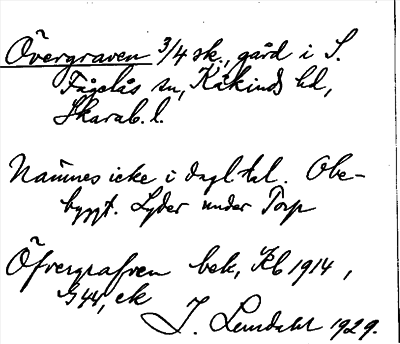 Övergraven 3/4 sk., gård i S.
Fågelås sn, Kåkinds hd,
Skarab. l.
Nämnes icke i dagl. tal. Obe-
byggt. Lyder under Torp
Öfvergrafven bek, Kb 1914,
G44, ek
J. Lundahl 1929.